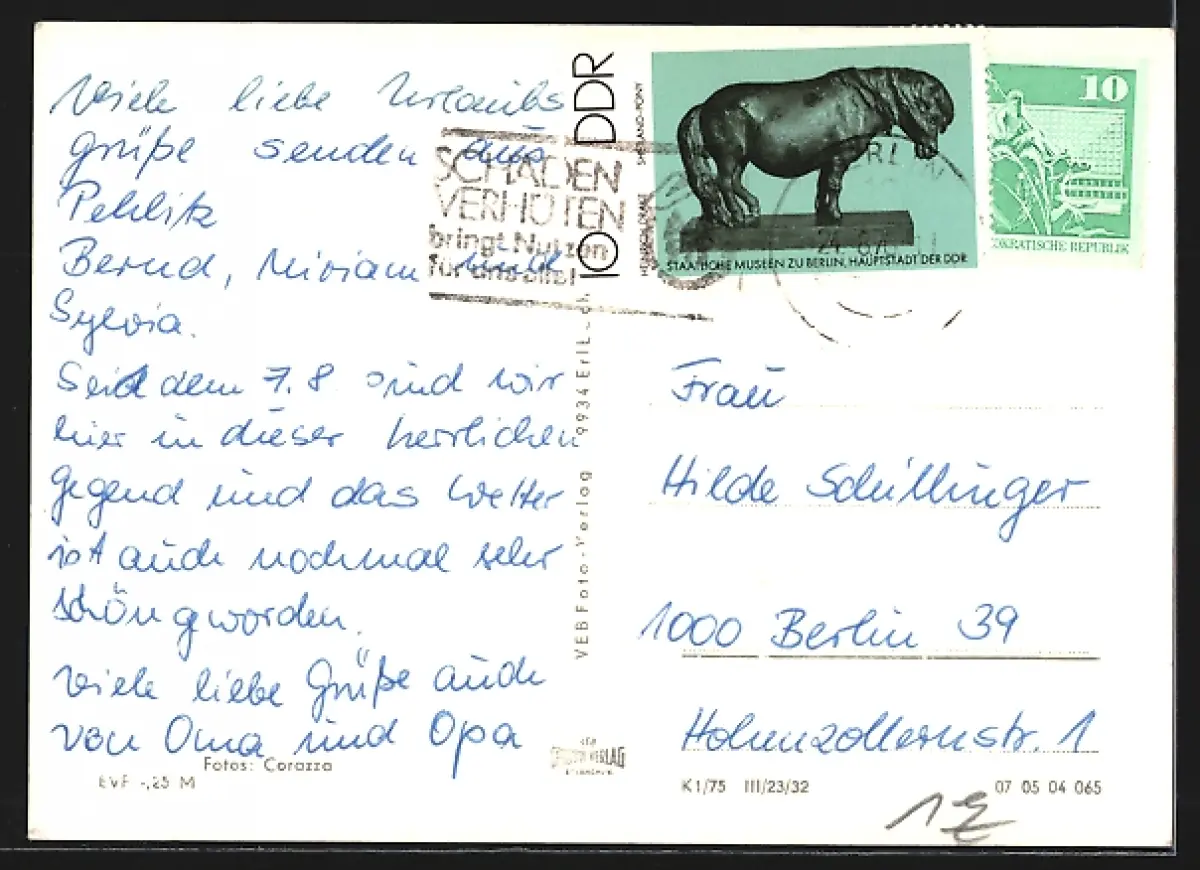 Viele liebe Urlaubs
grüße senden aus
Pehlitz
Bernd, Miriam und
Sylvia.
Seid dem 7.8 sind wir
hier in dieser herrlichen
Gegend und das Wetter
ist auch nochmal sehr
schön geworden.
Viele liebe Grüße auch
von Oma und Opa
Fotos: Corazza
EVP -,25 M
SCHADEN
VERHÜTEN
bringt Nutzen
für uns alle!
10 DDR
SHETLAND-PONY
STAATLICHE MUSEEN ZU BERLIN, HAUPTSTADT DER DDR
10
OKRATISCHE REPUBLIK
VEB Foto-Verlag 9934 Erl
VERLAG
Frau
Hilde Schüllinger
1000 Berlin 39
Hohenzollernstr. 1
K1/75 III/23/32
07 05 04 065